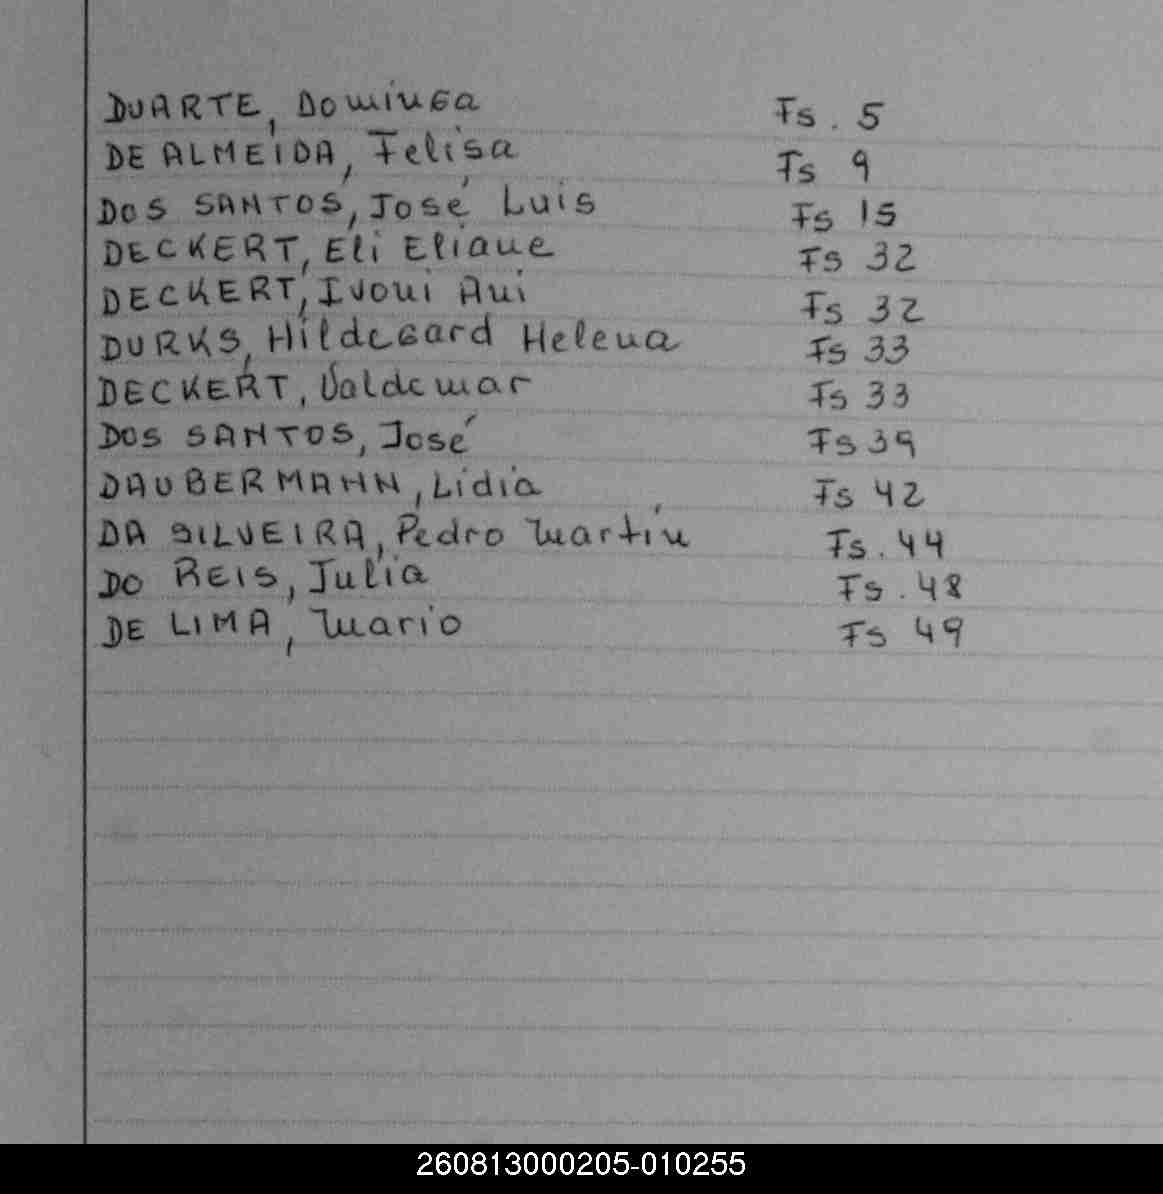 DUARTE, Dominga Fs. 5
DE ALMEIDA, Felisa Fs 9
DOS SANTOS, José Luis Fs 15
DECKERT, Eli Eliane Fs 32
DECKERT, Ivoni Ani Fs 32
DURKS, Hildegard Helena Fs 33
DECKERT, Valdemar Fs 33
DOS SANTOS, José Fs 39
DAUBERMANN, Lidia Fs 42
DA SILVEIRA, Pedro Martín Fs. 44
DO REIS, Julia Fs. 48
DE LIMA, Mario Fs 49
260813000205-010255